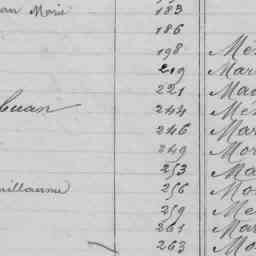 an Marie 183
186
198 Mé
219 Mar
221 Mad
244 Mé
246 Mar
249 Mor
253 Ma
illaume 256 Mo
259 Me
261 Mar
263 Mo